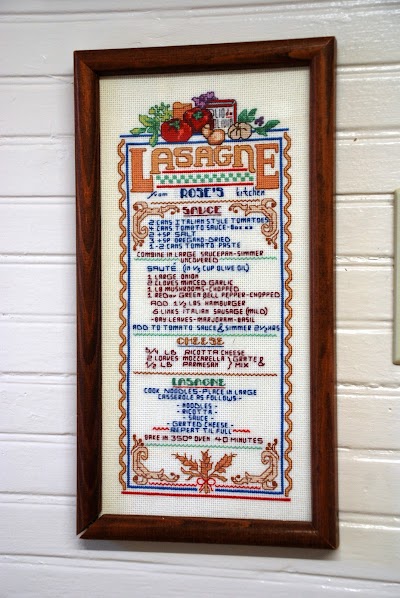 LASAGNE
from ROSE'S kitchen
SAUCE
2 CANS ITALIAN STYLE TOMATOES
4 CANS TOMATO SAUCE-8oz
2 tSP SALT
3 tSP OREGANO-DRIED
1-2 CANS TOMATO PASTE
COMBINE IN LARGE SAUCEPAN-SIMMER
UNCOVERED
SAUTÉ (IN 1/3 CUP OLIVE OIL)
1 LARGE ONION
2 CLOVES MINCED GARLIC
1 LB MUSHROOMS-CHOPPED
1 RED or GREEN BELL PEPPER-CHOPPED
ADD 1 1/2 LBS HAMBURGER
6 LINKS ITALIAN SAUSAGE (MILD)
-BAY LEAVES-MARJORAM-BASIL
ADD TO TOMATO SAUCE & SIMMER 2 1/2 HRS
CHEESE
3/4 LB RICOTTA CHEESE
2 LOAVES MOZZARELLA \ GRATE &
1/2 LB PARMESAN / MIX
LASAGNE
COOK NOODLES-PLACE IN LARGE
CASSEROLE AS FOLLOWS-
-NOODLES-
-RICOTTA-
-SAUCE-
-GRATED CHEESE-
REPEAT TIL FULL
BAKE IN 350° OVEN 40 MINUTES